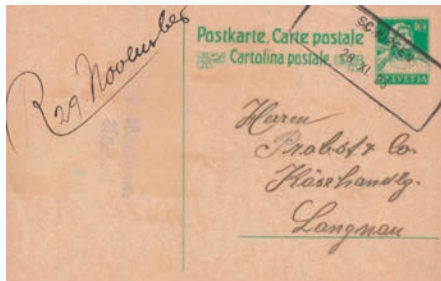 R 29. November
Postkarte. Carte postale
Cartolina postale
10
HELVETIA
29. XI.
Herrn
Probst & Co.
Käsehandlg.
Langnau